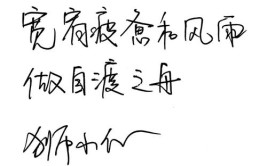 宽宥疲惫和风雨
做自渡之舟